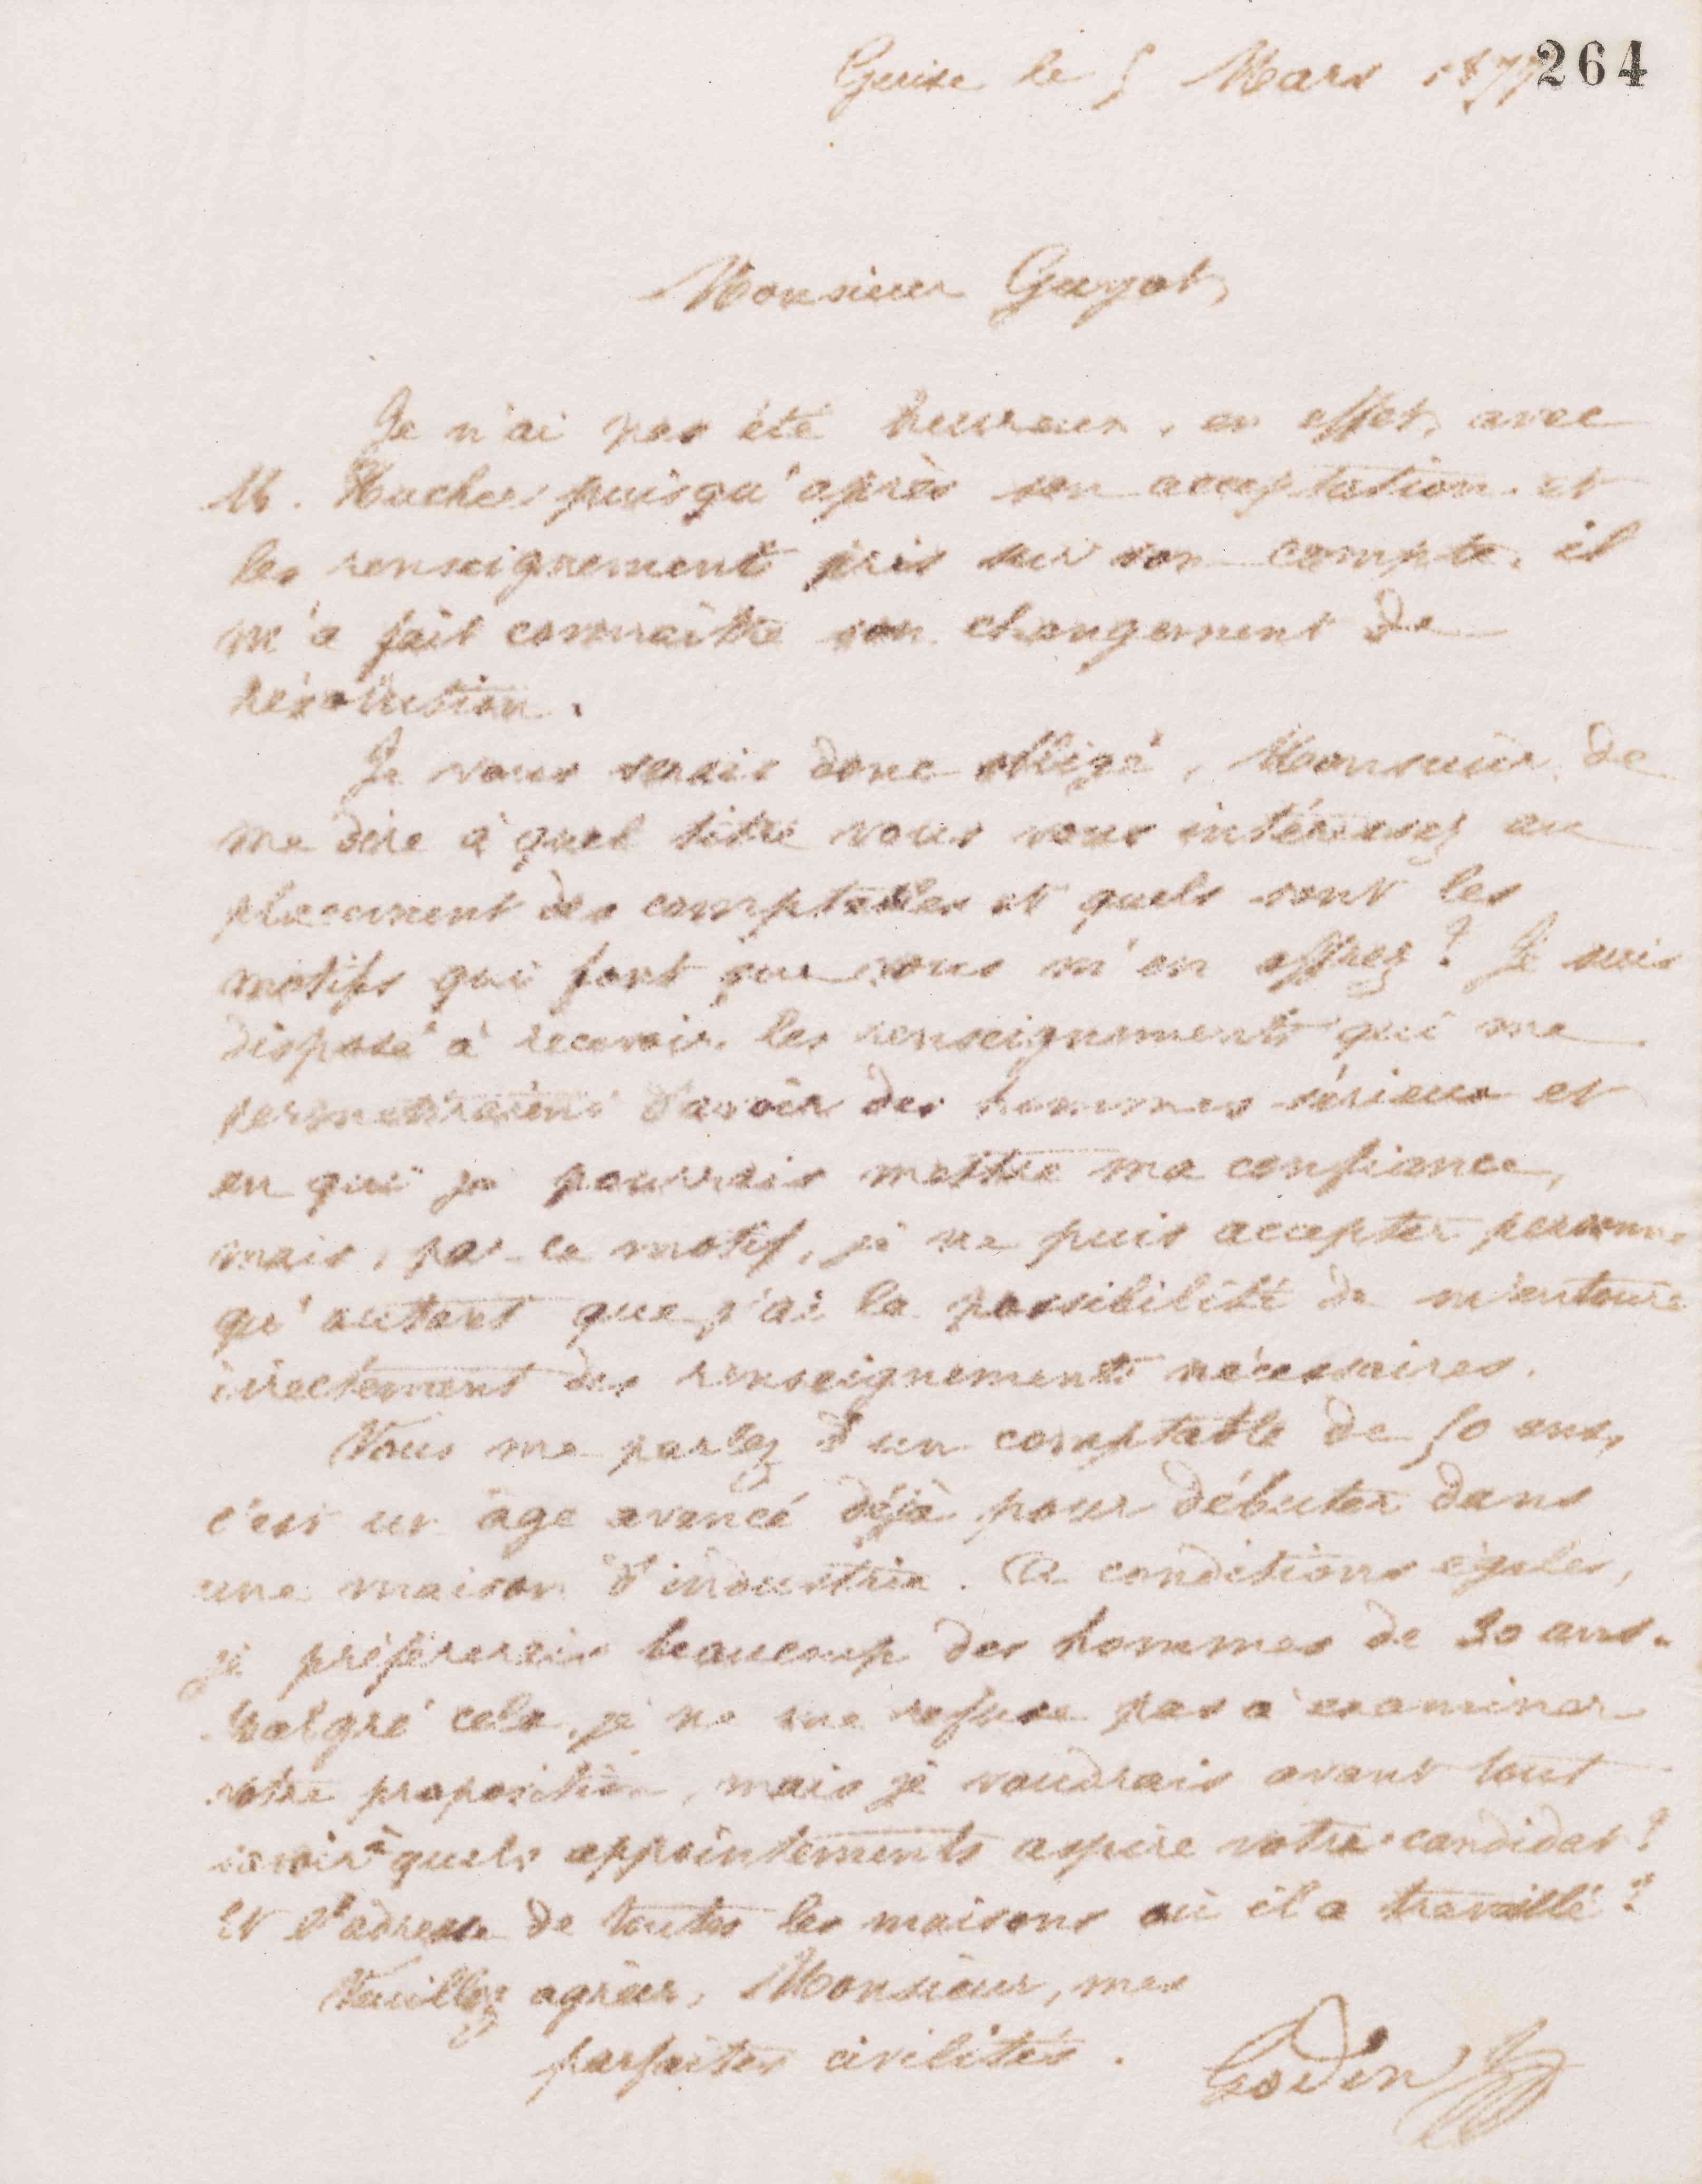 Guise le 5 Mars 1877
264
Monsieur Guyot,
Je n'ai pas été heureux, en effet, avec
M. Hucher puisqu'après son acceptation et
les renseignements pris sur son compte, il
m'a fait connaître son changement de
résolution.
Je vous serais donc obligé, Monsieur, de
me dire à quel titre vous vous intéressez au
placement des comptables et quels sont les
motifs qui font que vous m'en offrez ? Je suis
disposé à recevoir les renseignements qui me
permettraient d'avoir des hommes sérieux et
en qui je pourrais mettre ma confiance,
mais, par ce motif, je ne puis accepter personne
qu'autant que j'ai la possibilité de m'entourer
directement des renseignements nécessaires.
Vous me parlez d'un comptable de 50 ans,
c'est un âge avancé déjà pour débuter dans
une maison d'industrie. A conditions égales,
je préférerais beaucoup des hommes de 30 ans.
Malgré cela, je ne me refuse pas à examiner
votre proposition, mais je voudrais avant tout
savoir à quels appointements aspire votre candidat ?
Et l'adresse de toutes les maisons où il a travaillé ?
Veuillez agréer, Monsieur, mes
parfaites civilités.
Godin